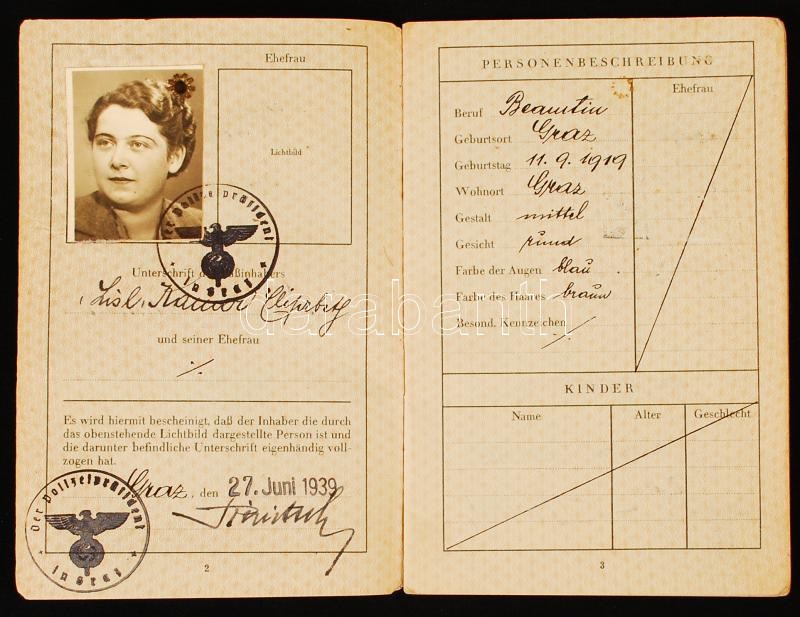 Ehefrau
Lichtbild
Der Polizeipräsident
in Graz
Unterschrift des Paßinhabers
Lisl
und seiner Ehefrau
./.
Es wird hiermit bescheinigt, daß der Inhaber die durch
das obenstehende Lichtbild dargestellte Person ist und
die darunter befindliche Unterschrift eigenhändig voll-
zogen hat.
Graz, den 27. Juni 1939
Der Polizeipräsident
in Graz
2
PERSONENBESCHREIBUNG
Ehefrau
Beruf Beamtin
Geburtsort Graz
Geburtstag 11. 9. 1919
Wohnort Graz
Gestalt mittel
Gesicht rund
Farbe der Augen blau
Farbe des Haares braun
Besond. Kennzeichen ./.
KINDER
Name Alter Geschlecht
3
darabanth